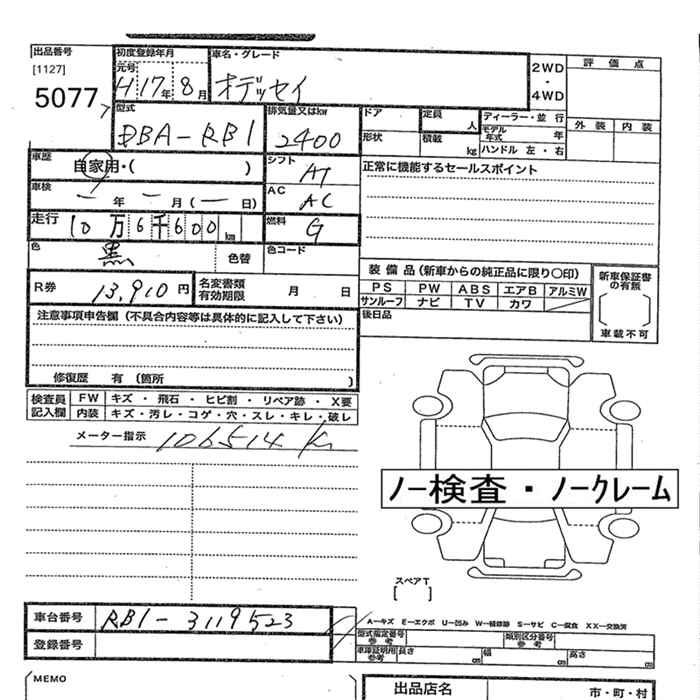 出品番号 初度登録年月 車名・グレード
[1127] 元号
5077 H17年8月 オデッセイ
2WD・4WD 評価点
外装 内装
型式 DBA-RB1 排気量又はkw 2400
ドア 定員 人 ディーラー・並行
形状 積載 kg モデル年式 年
ハンドル 左・右
車歴 自家用・( ) シフト AT
正常に機能するセールスポイント
車検 ー年ー月(ー日) AC AC
走行 10万6千600km 燃料 G
色 黒 色替 色コード
装備品(新車からの純正品に限り〇印) 新車保証書の有無
PS PW ABS エアB アルミW
サンルーフ ナビ TV カワ
車載不可
R券 13,910円 名変書類有効期限 月 日
後日品
注意事項申告欄(不具合内容等は具体的に記入して下さい)
修復歴 有(箇所 )
検査員記入欄 FW キズ・飛石・ヒビ割・リペア跡・X要
内装 キズ・汚レ・コゲ・穴・スレ・キレ・破レ
メーター指示 106514 K
ノー検査・ノークレーム
スペアT
[ ]
A―キズ E―エクボ U―凹み W―補修跡 S―サビ C―腐食 XX―交換済
車台番号 RB1-3119523
型式指定番号 参考 類別区分番号 参考
登録番号
車庫証明用 参考 長さ cm 幅 cm 高さ cm
MEMO
出品店名 市・町・村